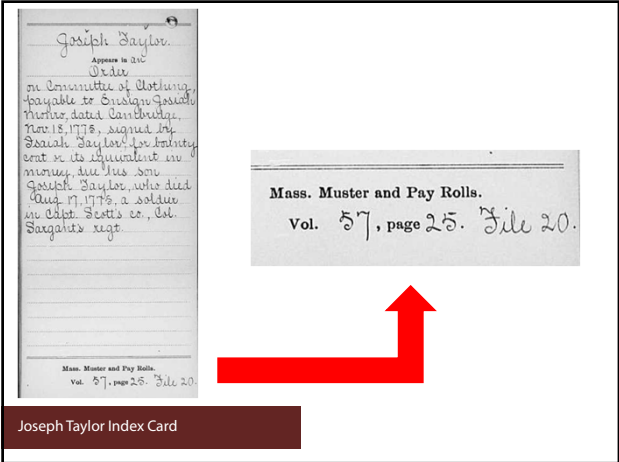 Joseph Taylor.
Appears in an
Order
on Committee of Clothing,
payable to Ensign Josiah
Monro, dated Cambridge,
Nov. 18, 1775, signed by
Isaiah Taylor, for bounty
coat or its equivalent in
money, due his son
Joseph Taylor, who died
Aug. 17, 1775, a soldier
in Capt. Scott's co., Col.
Sargant's regt.
Mass. Muster and Pay Rolls.
Vol. 57, page 25. File 20.
Mass. Muster and Pay Rolls.
Vol. 57, page 25. File 20.
Joseph Taylor Index Card